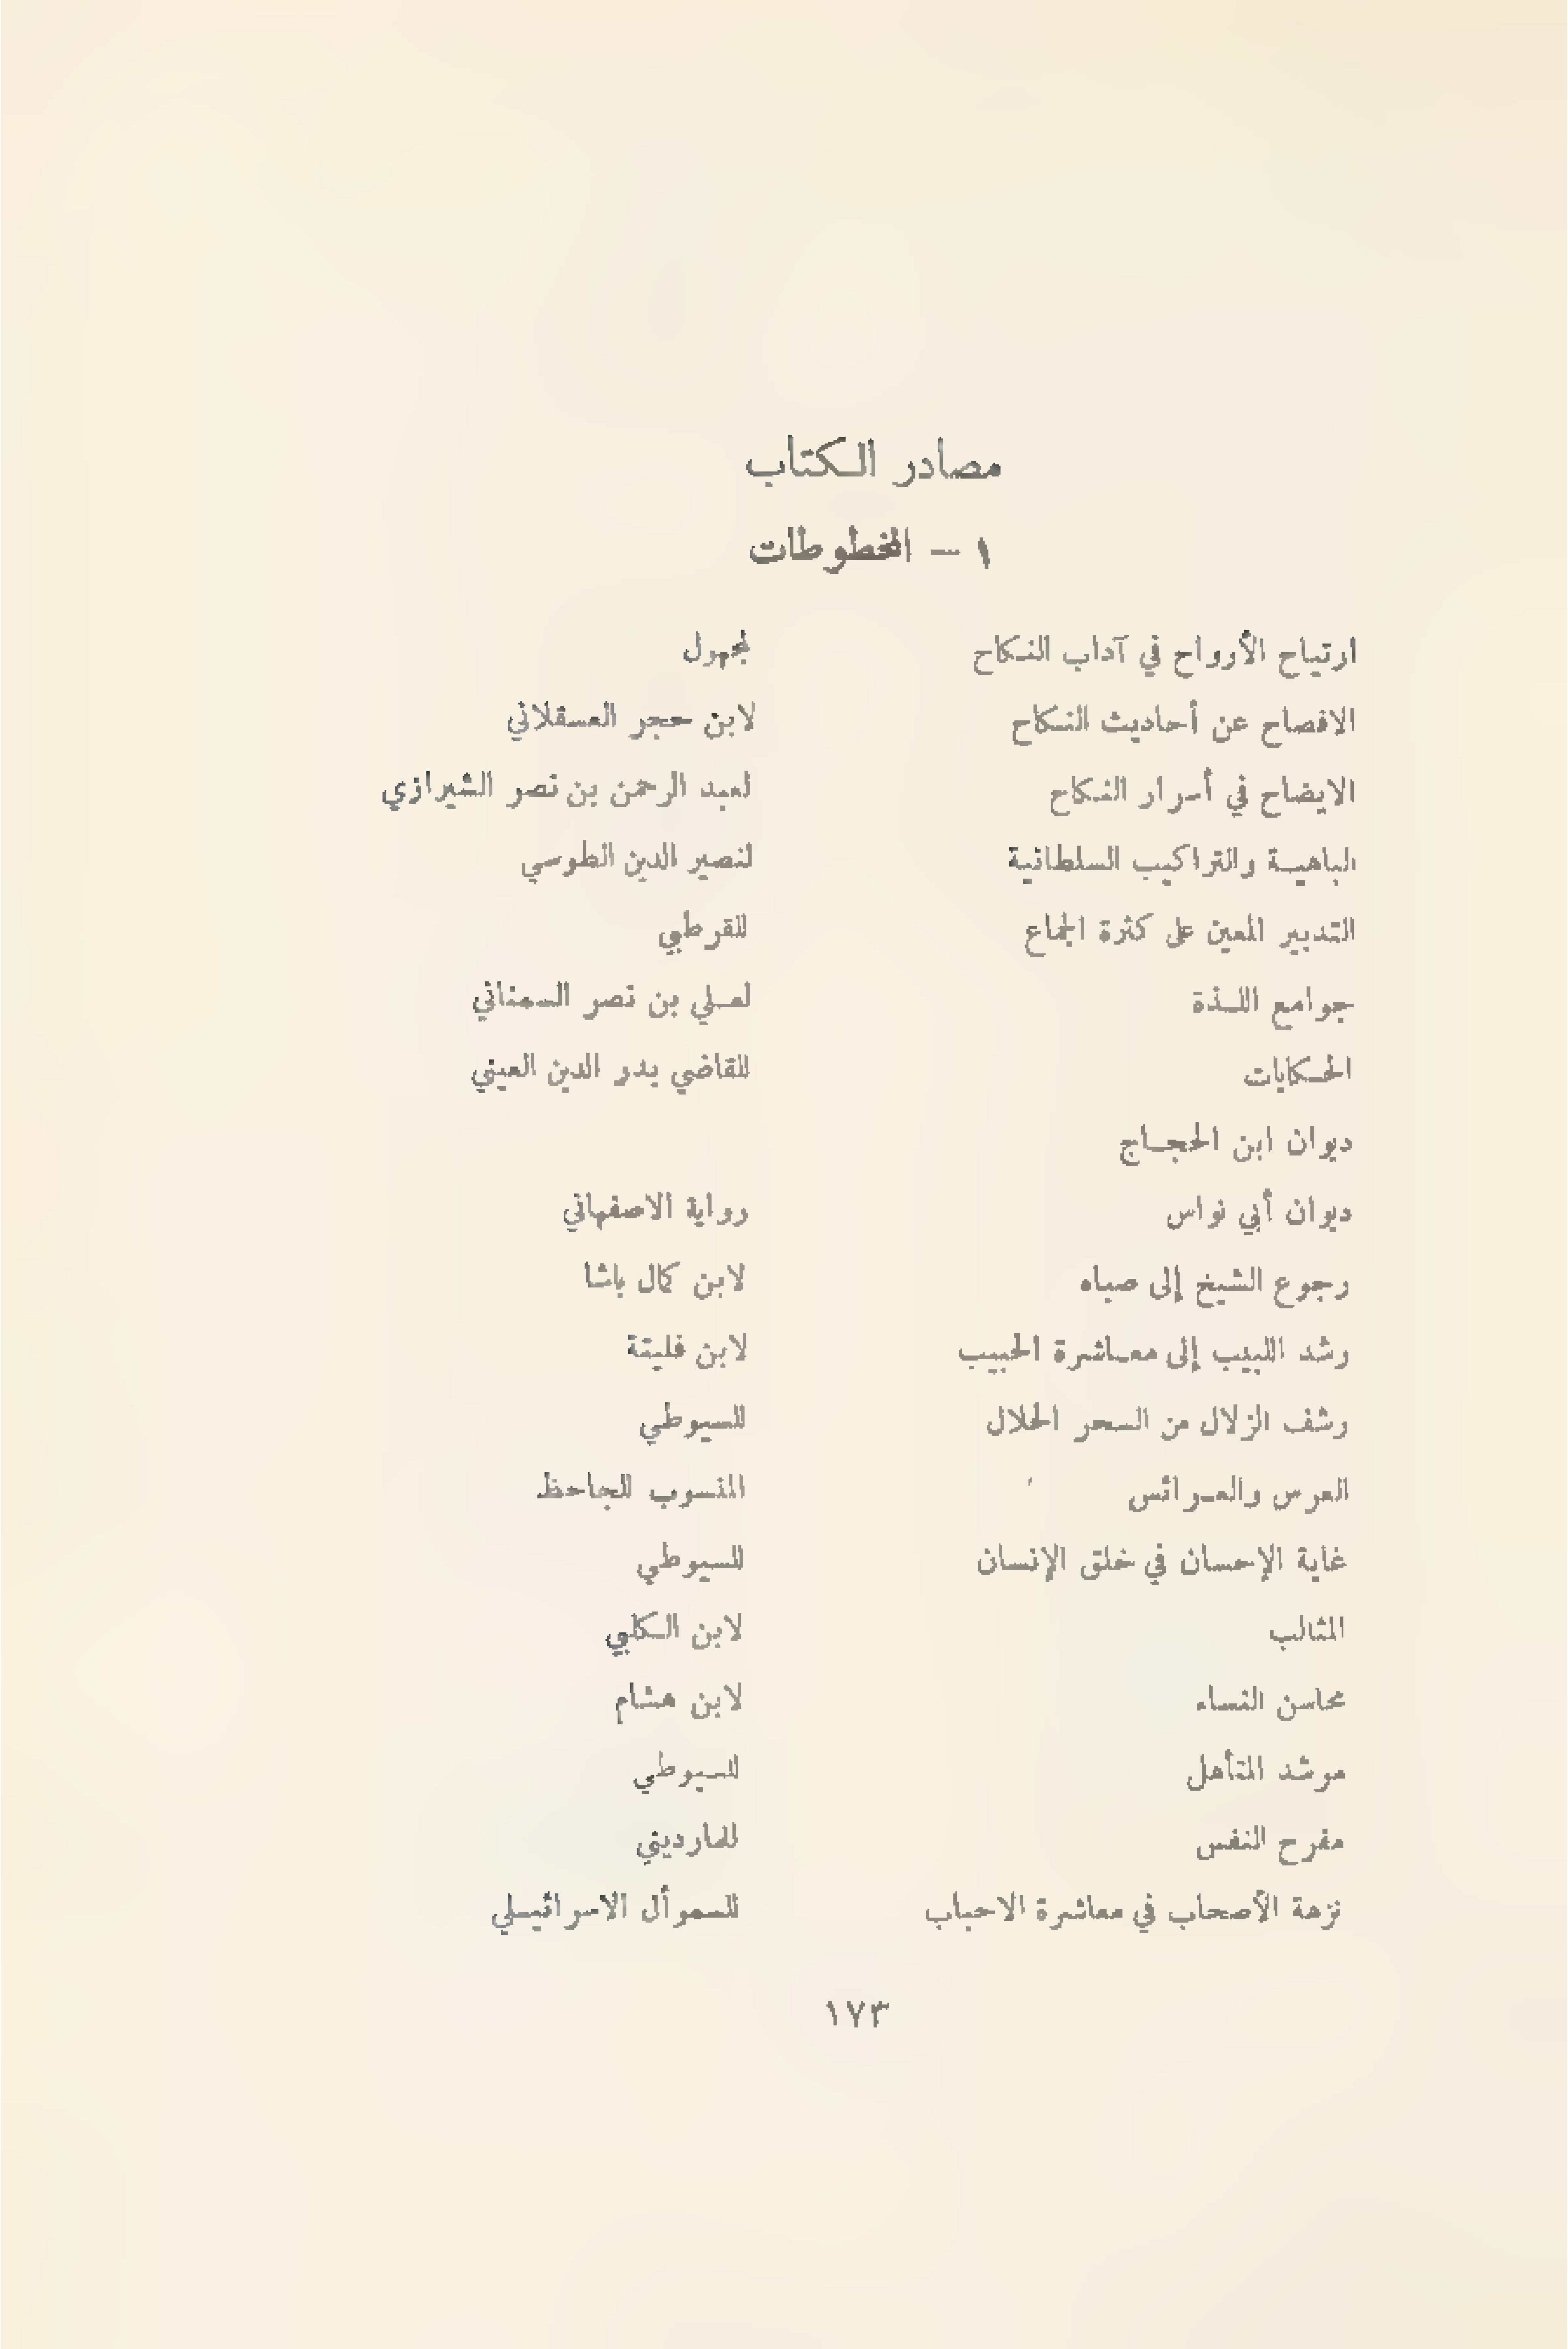 مصادر الكتاب
١ - المخطوطات
ارتياح الأرواح في آداب النكاح لمجهول
الافصاح عن أحاديث النكاح لابن حجر العسقلاني
الايضاح في أسرار النكاح لعبد الرحمن بن نصر الشيرازي
الباهية والتراكيب السلطانية لنصير الدين الطوسي
التدبير المعين على كثرة الجماع للقرطبي
جوامع اللذة لعلي بن نصر السمناني
الحكايات للقاضي بدر الدين العيني
ديوان ابن الحجاج
ديوان أبي نواس رواية الاصفهاني
رجوع الشيخ إلى صباه لابن كمال باشا
رشد اللبيب إلى معاشرة الحبيب لابن فليتة
رشف الزلال من السحر الحلال للسيوطي
العرس والعرائس المنسوب للجاحظ
غاية الإحسان في خلق الإنسان للسيوطي
المثالب لابن الكلبي
محاسن النساء لابن هشام
مرشد المتأهل للسيوطي
مفرح النفس للمارديني
نزهة الأصحاب في معاشرة الاحباب للسموأل الاسرائيلي
١٧٣